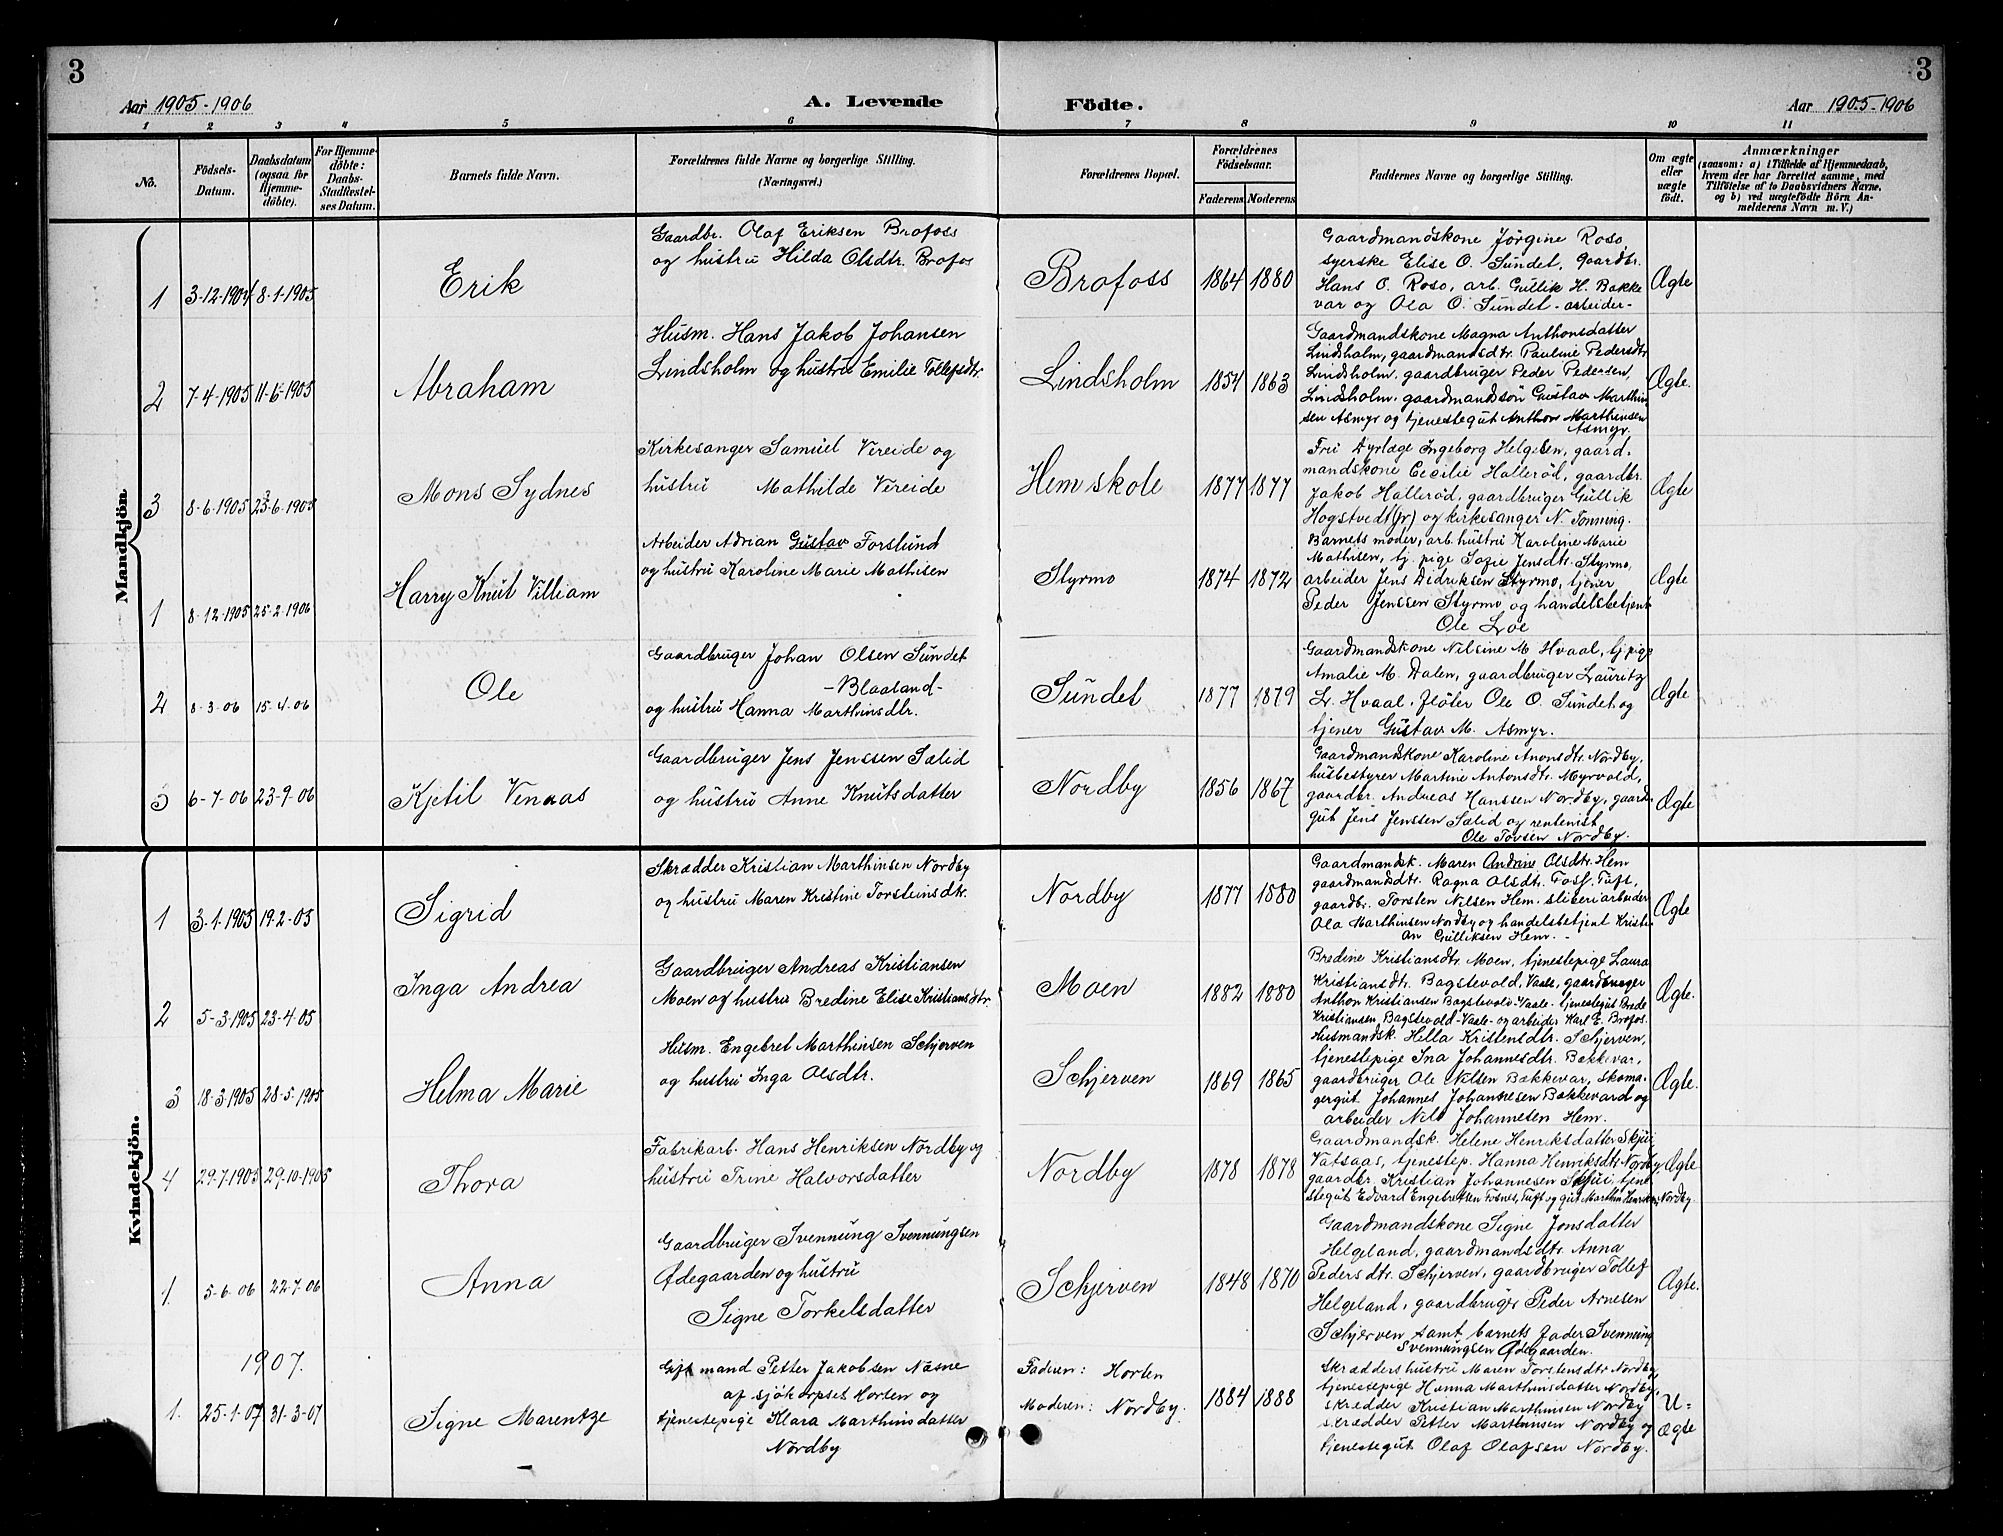 3
3
Aar 1905-1906
A. Levende
Födte.
Aar 1905-1906
1 2 3 4 5 6 7 8 9 10 11
No.
Födsels-Datum.
Daabsdatum (ogsaa for Hjemme-döbte).
For Hjemme-döbte: Daabs-Stadfæstel-ses Datum.
Barnets fulde Navn.
Forældrenes fulde Navne og borgerlige Stilling.
(Næringsvei.)
Forældrenes Bopæl.
Forældrenes Födselsaar.
Faderens Moderens
Faddernes Navne og borgerlige Stilling.
Om ægte eller uægte födt.
Anmærkninger
(saasom: a) i Tilfælde af Hjemmedaab,
hvem der har forrettet samme, med
Tilföielse af to Daabsvidners Navne,
og b) ved uægtefödte Börn An-
melderens Navn m. V.)
Mandkjön
1 3-12-1904 8-1-1905 Erik
Gaardbr. Olaf Eriksen Brofoss
og hustru Hilda Olsdtr. Brofos
Brofoss 1864 1880
Gaardmandskone Jörgine Roso,
syerske Elise O. Sundet, gaardbr.
Hans O. Roso, arb. Gullik H. Bakke
var og Ola O. Sundet - arbeider-
Ægte
2 7-4-1905 11-6-1905 Abraham
Husm. Hans Jakob Johansen
Lindsholm og hustru Emilie Tollefsdtr.
Lindsholm 1854 1863
Gaardmandskone Magna Anthonsdatter
Lindsholm, gaardmandsdtr. Pauline Pedersdtr.
Lindsholm, gaardbruger Peder Pedersen,
Lindsholm, gaardmandssön Gustav Marthin
sen Asmyr og tjenestegut Anthon Marthinsen
Asmyr.
Ægte.
3 8-6-1905 23-6-1905 Mons Sydnes
Kirkesanger Samuel Vereide og
hustru Mathilde Vereide
Hem skole 1877 1877
Fru Dyrlæge Ingeborg Helgesen, gaard-
mandskone Cecilie Halleröd, gaardbr.
Jakob Halleröd, gaardbruger Gullik
Hogstvedt (jr) og kirkesanger N. Tonning.
Ægte
1 8-12-1905 25-2-1906 Harry Knut Villiam
Arbeider Adrian Gustav Forslund
og hustru Karoline Marie Mathisen
Styrmo 1874 1872
Barnets moder, arb. hustru Karoline Marie
Mathisen, tj. pige Sofie Jensdtr. Styrmo,
arbeider Jens Didriksen Styrmo, tjener
Peder Jenssen Styrmo og handelsbetjent
Ole Loe
Ægte
2 8-3-06 15-4-06 Ole
Gaardbruger Johan Olsen Sundet
-Blaaland-
og hustru Hanna Marthinsdtr.
Sundet 1877 1879
Gaardmandskone Nilsine M. Hvaal, tj. pige
Amalie M. Dalen, gaardbruger Lauritz
L. Hvaal, flöter Ole O. Sundet og
tjener Gustav M. Asmyr.
Ægte
3 6-7-06 23-9-06 Kjetil Venaas
Gaardbruger Jens Jenssen Sælid
og hustru Anne Knutsdatter
Nordby 1856 1867
Gaardmandskone Karoline Anonsdtr. Nordby,
husbestyrer Martine Antonsdtr. Myrvold,
gaardbr. Andreas Hanssen Nordby, gaard-
gut Jens Jenssen Sælid og rentenist
Ole Tovsen Nordby.
Ægte
Kvindekjön.
1 3-1-1905 19-2-05 Sigrid
Skrædder Kristian Marthinsen Nordby
og hustru Maren Kristine Torsteinsdtr.
Nordby 1877 1880
Gaardmandsk. Maren Andrine Olsdtr. Hem
gaardmandsdtr. Ragna Olsdtr. Foss, Tuft,
gaardbr. Torsten Nilsen Hem, sliberiarbeider
Ola Marthinsen Nordby og handelsbetjent Kristi-
an Gulliksen Hem.
Ægte
2 5-3-1905 23-4-05 Inga Andrea
Gaardbruger Andreas Kristiansen
Moen og hustru Bredine Elise Kristiansdtr.
Moen 1882 1880
Bredine Kristiansdtr. Moen, tjenestepige Laura
Kristiansdtr. Bagstevold, Vaale, gaardbruger
Anthon Kristiansen Bagstevold-Vaale- tjenestegut Brede
Kristiansen, Bagstevold-Vaale- og arbeider Karl E. Brofos.
Ægte.
3 18-3-1905 28-5-1905 Helma Marie
Husm. Engebret Marthinsen Schjerven
og hustru Inga Olsdtr.
Schjerven 1869 1865
Husmandsk. Hella Kristensdtr. Schjerven,
tjenestepige Ina Johannesdtr. Bækkevar,
gaardbruger Ole Nilsen Bækkevar, skoma-
gergut Johannes Johannesen Bækkevard og
arbeider Nils Johannesen Hem.
Ægte.
4 29-7-1905 29-10-1905 Thora
Fabrikarb. Hans Henriksen Nordby og
hustru Trine Halvorsdatter
Nordby 1878 1878
Gaardmandsk. Helene Henriksdatter Skjui
Vatsaas, tjenestep. Hanna Henriksdtr. Nordby
gaardbr. Kristian Johannesen Skjui, tjene
stegut Edvard Engebretsen Fosnes, Tuft og gut Marthin Henriksen Nordby.
Ægte
1. 5-6-06 22-7-06 Anna
Gaardbruger Svennung Svennungsen
Ødegaarden og hustru
Signe Torkelsdatter
Schjerven 1848 1870
Gaardmandskone Signe Jonsdatter
Helgeland, gaardmandsdtr. Anna
Pedersdtr. Schjerven, gaardbruger Tollef
Helgeland, gaardbruger Peder Arnesen
Schjerven samt barnets fader Svennung
Svennungsen Ødegaarden.
Ægte.
1907.
1. 25-1-07 31-3-07 Signe Marentze
Gift mand Petter Jakobsen Næsne
af sjökorpset Horten og
tjenestepige Klara Marthinsdatter
Nordby
Faderen: Horten
Moderen: Nordby.
1884 1888
Skræddershustru Maren Torstensdtr. Nordby,
tjenestepige Hanna Marthinsdatter Nordby,
skrædder Kristian Marthinsen Nordby
skrædder Petter Marthinsen Nordby og
tjenestegut Olaf Olafsen Nordby.
U-
Ægte